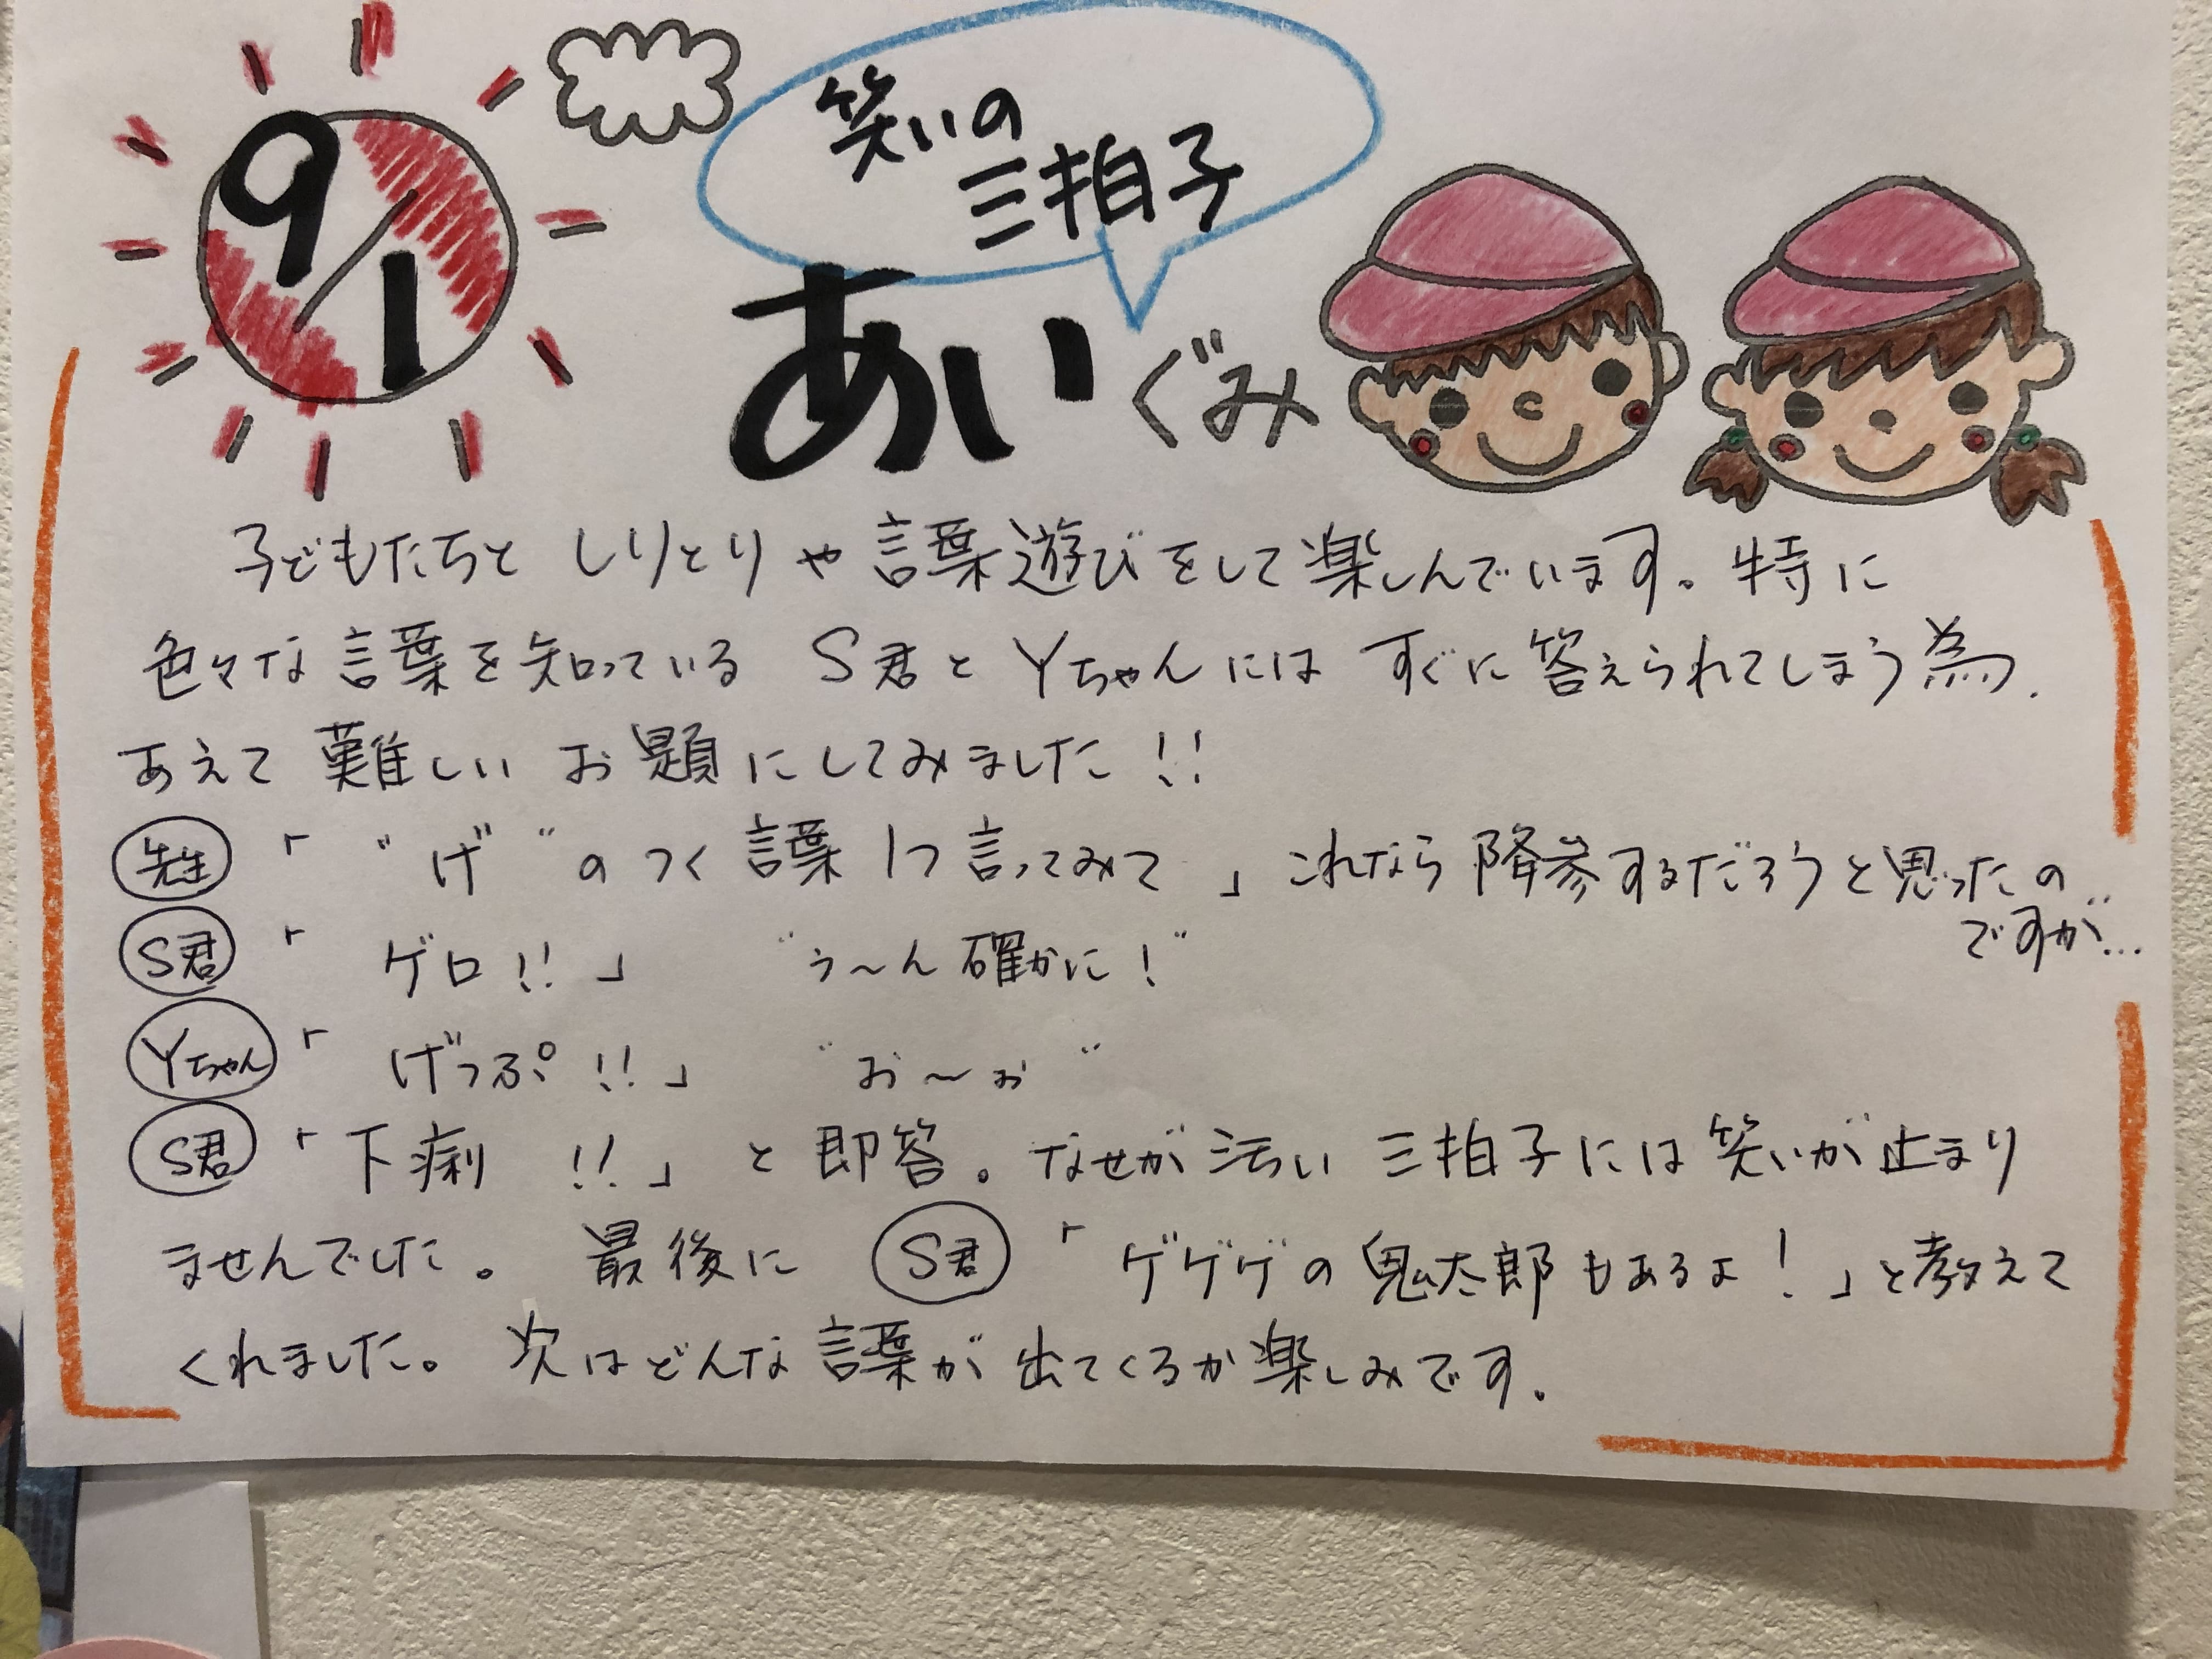 9/1
笑いの
三拍子
あいぐみ
子どもたちと しりとりや言葉遊びをして楽しんでいます。特に
色々な言葉を知っている S君とYちゃんには すぐに答えられてしまう為、
あえて 難しい お題にしてみました!!
先生「 "げ"のつく言葉 1つ言ってみて 」これなら降参するだろうと思ったの
ですが…
S君「 ゲロ!! 」 "う〜ん確かに!"
Yちゃん「 げっぷ!! 」 "お〜ぉ"
S君「下痢 !!」と即答。なぜか汚い 三拍子には笑いが止まり
ませんでした。 最後に S君「ゲゲゲの鬼太郎もあるよ!」と教えて
くれました。 次はどんな言葉が出てくるか楽しみです。